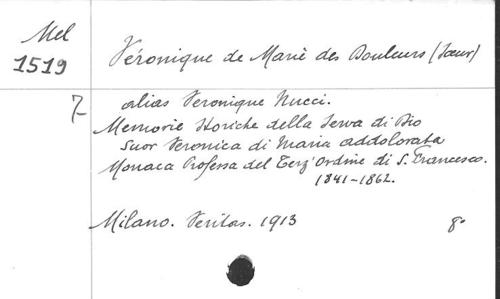 Mel
1519
Véronique de Marie des Douleurs (Sœur)
7
alias Veronique Nucci.
Memorie Storiche della Serva di Dio
Suor Veronica di Maria addolorata
Monaca Professa del Terz'Ordine di S. Francesco.
1841-1862.
Milano. Veritas. 1913
8°